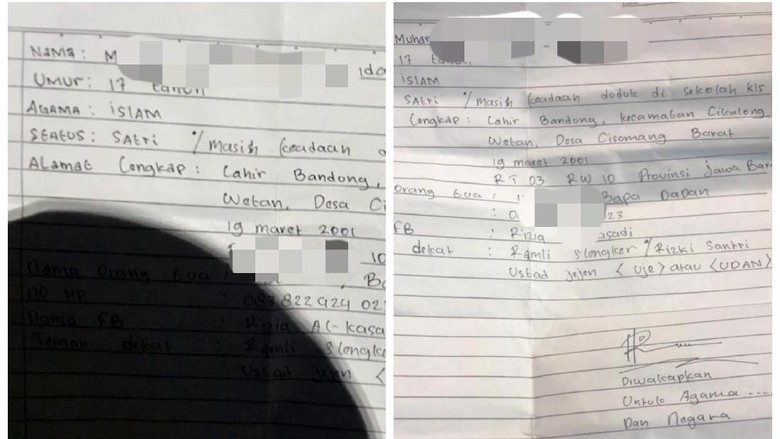 NAMA : M
UMUR : 17 tahun
AGAMA : ISLAM
STATUS : SATRI % Masih keadaan
ALamat Lengkap : Lahir Bandung,
Wetan, Desa Ci
19 maret 2001
10
Nama Orang tua : Ba
no HP : 083 822 924 02
Nama FB : Rizia AL-kasa
Teman dekat : Ramli slongke
Ustad
Muhar
17 tahun
ISLAM
SATRI % Masih keadaan duduk di sekolah kls
Lengkap : Lahir Bandung, kecamatan Cikalong
Wetan, Desa Cisomang Barat
19 maret 2001
RT 03 RW 10 Provinsi Jawa Bar
Orang tua : Bapa Dadan
: 0 23
FB : Rizia asadi
dekat : Ramli slongker % Rizki Santri
Ustad jejen < Uje > atau < UDAN >
Diwakapkan
Untuk Agama ...
Dan Negara